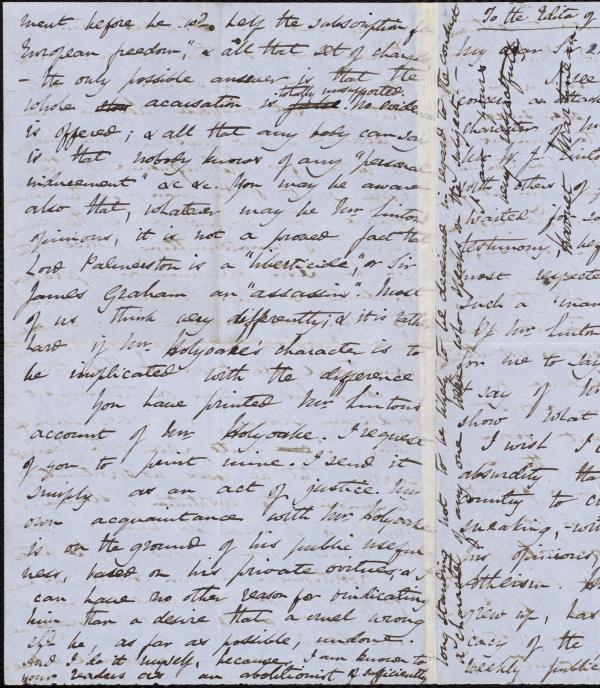 ment before he wd help the subscription for
European freedom," & all that set of charges
- the only possible answer is that the
whole accusation is utterly unsupported. No evidence
is offered; & all that any body can say
is that nobody knows of any "personal
inducement" &c &c. You may be aware
also that, whatever may be Mr. Linton's
opinions, it is not a proved fact that
Lord Palmerston is a "liberticide," or Sir
James Graham an "assassin". Most
of us think very differently; & it is rather
hard if Mr. Holyoake's character is to
be implicated with the difference
You have printed Mr. Linton's
account of Mr. Holyoake. I request
of you to print mine. I send it
simply as an act of justice. My
own acquaintance with Mr. Holyoake
is on the ground of his public useful
ness, based on his private virtues; & I
can have no other reason for vindicating
him than a desire that a cruel wrong
shd be, as far as possible, undone.
And I do it myself, because I am known to
your readers as an abolitionist of sufficiently
long standing not to be likely to be deceived in regard to the conduct
& character of any one who speaks on the subject. -
I am yours
very respectfully
Harriet Martineau
To the Editor of
My dear Sir
I see
character of
Mr. W. J. Linton
with others of
waited for
testimony,
most respected
such a "man
If Mr. Linton
for me to say
I say of
show what
I wish I c
absurdity tha
country to
speaking, - with
his opinions
Atheism.
grew up, has
cacy of the
weekly public